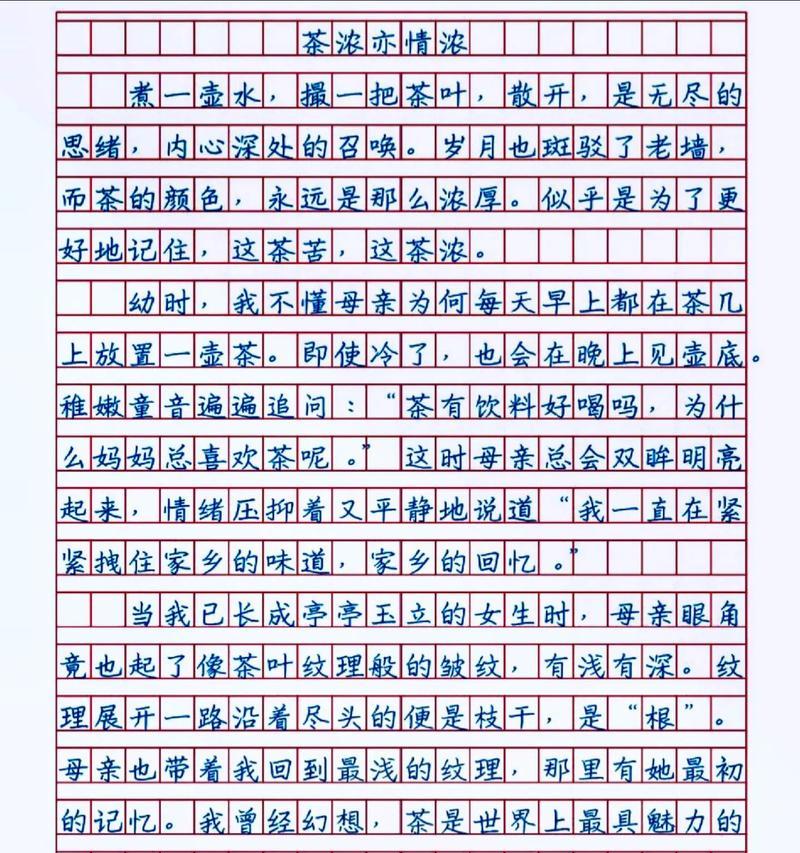 茶浓亦情浓
煮一壶水，撮一把茶叶，散开，是无尽的
思绪，内心深处的召唤。岁月也斑驳了老墙，
而茶的颜色，永远是那么浓厚。似乎是为了更
好地记住，这茶苦，这茶浓。
幼时，我不懂母亲为何每天早上都在茶几
上放置一壶茶。即使冷了，也会在晚上见壶底。
稚嫩童音遍遍追问：“茶有饮料好喝吗，为什
么妈妈总喜欢茶呢。”这时母亲总会双眸明亮
起来，情绪压抑着又平静地说道“我一直在紧
紧拽住家乡的味道，家乡的回忆。”
当我已长成亭亭玉立的女生时，母亲眼角
竟也起了像茶叶纹理般的皱纹，有浅有深。纹
理展开一路沿着尽头的便是枝干，是“根”。
母亲也带着我回到最浅的纹理，那里有她最初
的记忆。我曾经幻想，茶是世界上最具魅力的